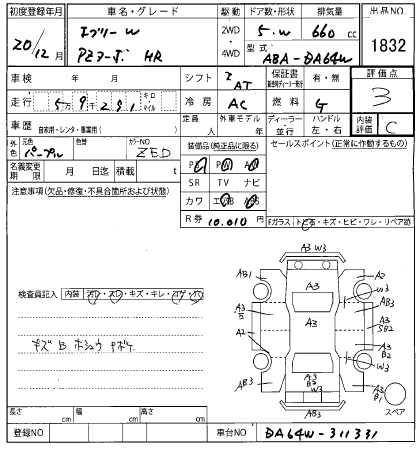 初度登録年月 車名・グレード 駆動 ドア数・形状 排気量 出品NO.
20/12月 エブリーW PZターボ HR 2WD・4WD 5・W 660cc 1832
型式 ABA-DA64W
車検 年 月 シフト IAT 保証書 有・無 評価点
走行 5万9千291 キロ マイル 冷房 AC 燃料 G 3
車歴 自家用・レンタ・事業用( ) 定員 人 外車モデル 年 ディーラー・並行 ハンドル 左・右 内装評価 C
外色 元色 パープル 色替 カラーNO ZED
装備品(純正品に限る) セールスポイント(正常に動作するもの)
名義変更期限 月 日迄 積載 t
PS PW AW
SR TV ナビ
注意事項(欠品・修復・不具合箇所および状態)
カワ エアB ABS
R券 10.010円
Fガラス トビ石・キズ・ヒビ・ワレ・リペア跡
検査員記入 内装 ヨゴレ・スレ・キズ・キレ・コゲ・穴
キズ B ホシュウ Pボケ
A3 W3
AB1
A2
A3
W3
A3
S
A3
A3
SB2
A2
A3
B2
W3
AB3
A3
B3
W3
A3
B1
AB3
スペア
長さ cm 幅 cm 高さ cm
登録NO 車台NO DA64W-311331